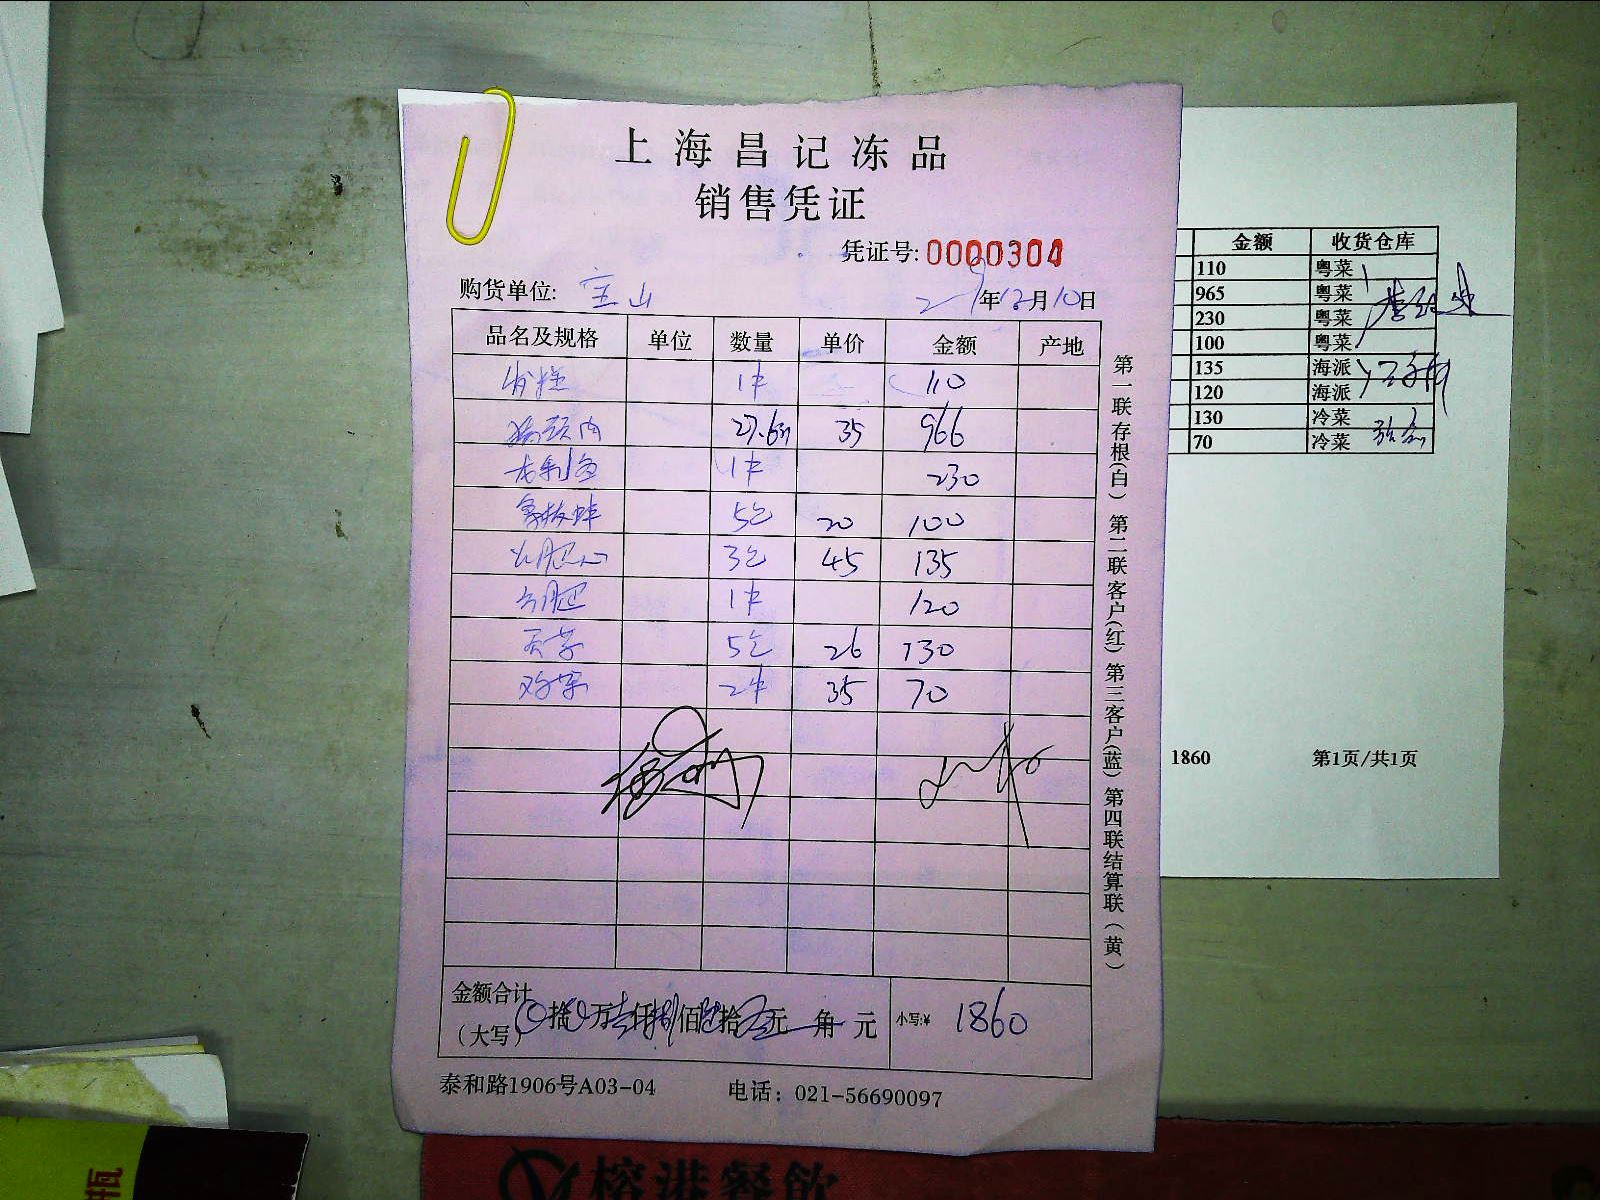 上海昌记冻品
销售凭证
凭证号: 0000304
购货单位: 宝山 年12月10日
品名及规格 单位 数量 单价 金额 产地
1件 110
猪颈肉 27.6斤 35 966
1件 230
5包 20 100
3包 45 135
1件 120
5包 26 130
2件 35 70
金额合计
(大写) 拾 万 仟 佰 拾 元 角 元 小写:¥ 1860
泰和路1906号A03-04 电话: 021-56690097
第一联存根(白) 第二联客户(红) 第三客户(蓝) 第四联结算联(黄)
金额 收货仓库
110 粤菜
965 粤菜
230 粤菜
100 粤菜
135 海派
120 海派
130 冷菜
70 冷菜
1860 第1页/共1页
榕港餐飲